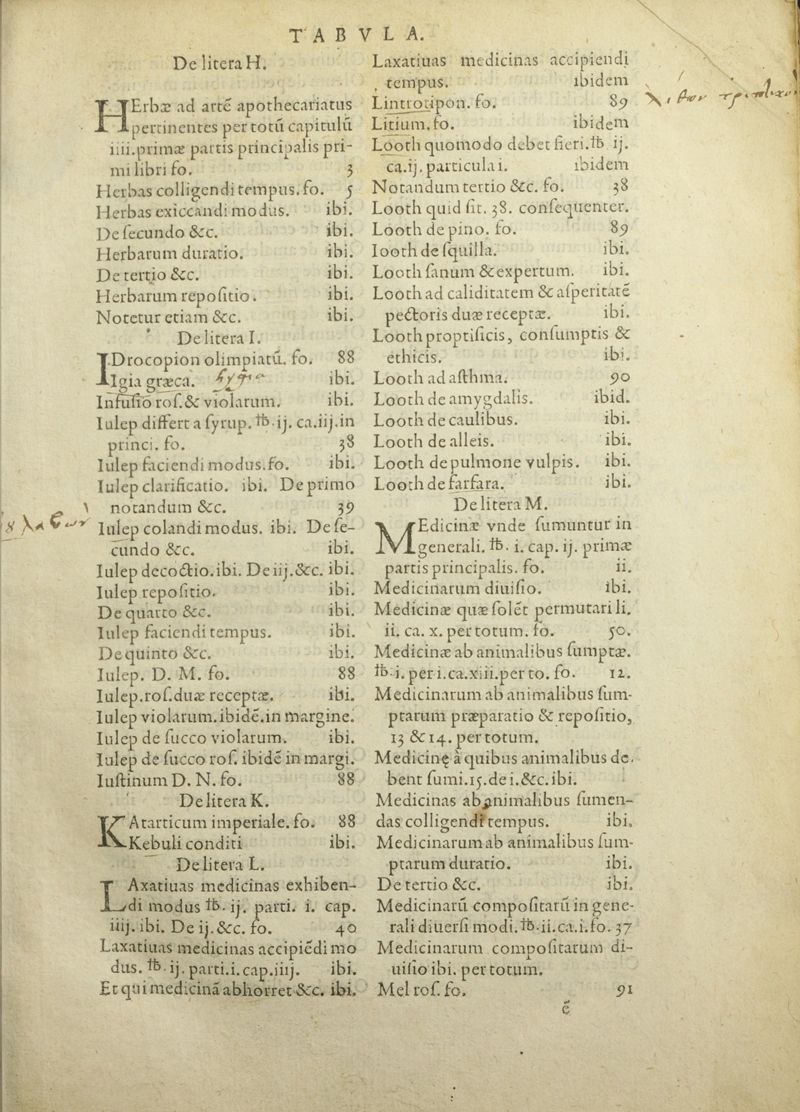 TABVLA.
De litera H.
HErbæ ad artē apothecariatus
pertinentes per totū capitulū
iiii.primæ partis principalis pri-
mi libri fo. 3
Herbas colligendi tempus.fo. 5
Herbas exiccandi modus. ibi.
De secundo &c. ibi.
Herbarum duratio. ibi.
De tertio &c. ibi.
Herbarum repositio. ibi.
Notetur etiam &c. ibi.
De litera I.
IDrocopion olimpiatū. fo. 88
Ilgia græca. ibi.
Infusio ros.& violarum. ibi.
Iulep differt a syrup. ℔.ij. ca.iij.in
princi. fo. 38
Iulep faciendi modus.fo. ibi.
Iulep clarificatio. ibi. De primo
notandum &c. 39
Iulep colandi modus. ibi. De se-
cundo &c. ibi.
Iulep decoctio.ibi. De iij.&c. ibi.
Iulep repositio. ibi.
De quarto &c. ibi.
Iulep faciendi tempus. ibi.
De quinto &c. ibi.
Iulep. D. M. fo. 88
Iulep.ros.duæ receptæ. ibi.
Iulep violarum.ibidē.in margine.
Iulep de succo violarum. ibi.
Iulep de succo ros. ibidē in margi.
Iustinum D. N. fo. 88
De litera K.
KAtarticum imperiale. fo. 88
Kebuli conditi ibi.
De litera L.
LAxatiuas medicinas exhiben-
di modus ℔. ij. parti. i. cap.
iiij. ibi. De ij.&c. fo. 40
Laxatiuas medicinas accipiēdi mo
dus. ℔. ij. parti.i.cap.iiij. ibi.
Et qui medicinā abhorret &c. ibi.
Laxatiuas medicinas accipiendi
tempus. ibidem
Lintrotipon. fo. 89
Litium. fo. ibidem
Looth quomodo debet fieri.℔ ij.
ca.ij. particula i. ibidem
Notandum tertio &c. fo. 38
Looth quid sit. 38. consequenter.
Looth de pino. fo. 89
Iooth de squilla. ibi.
Looth sanum & expertum. ibi.
Looth ad caliditatem & asperitatē
pectoris duæ receptæ. ibi.
Looth proptisicis, consumptis &
ethicis. ibi.
Looth ad asthma. 90
Looth de amygdalis. ibid.
Looth de caulibus. ibi.
Looth de alleis. ibi.
Looth de pulmone vulpis. ibi.
Looth de farfara. ibi.
De litera M.
MEdicinæ vnde sumuntur in
generali. ℔. i. cap. ij. primæ
partis principalis. fo. ii.
Medicinarum diuisio. ibi.
Medicinæ quæ solēt permutari li.
ii. ca. x. per totum. fo. 50.
Medicinæ ab animalibus sumptæ.
℔.i. per i.ca.xiii.per to. fo. 12.
Medicinarum ab animalibus sum-
ptarum præparatio & repositio,
13 & 14. per totum.
Medicinę à quibus animalibus de-
bent sumi.15.de i.&c.ibi.
Medicinas ab animalibus sumen-
das colligendi tempus. ibi.
Medicinarum ab animalibus sum-
ptarum duratio. ibi.
De tertio &c. ibi.
Medicinarū compositarū in gene-
rali diuersi modi.℔.ii.ca.i.fo. 37
Medicinarum compositarum di-
uisio ibi. per totum.
Mel ros. fo. 91
é